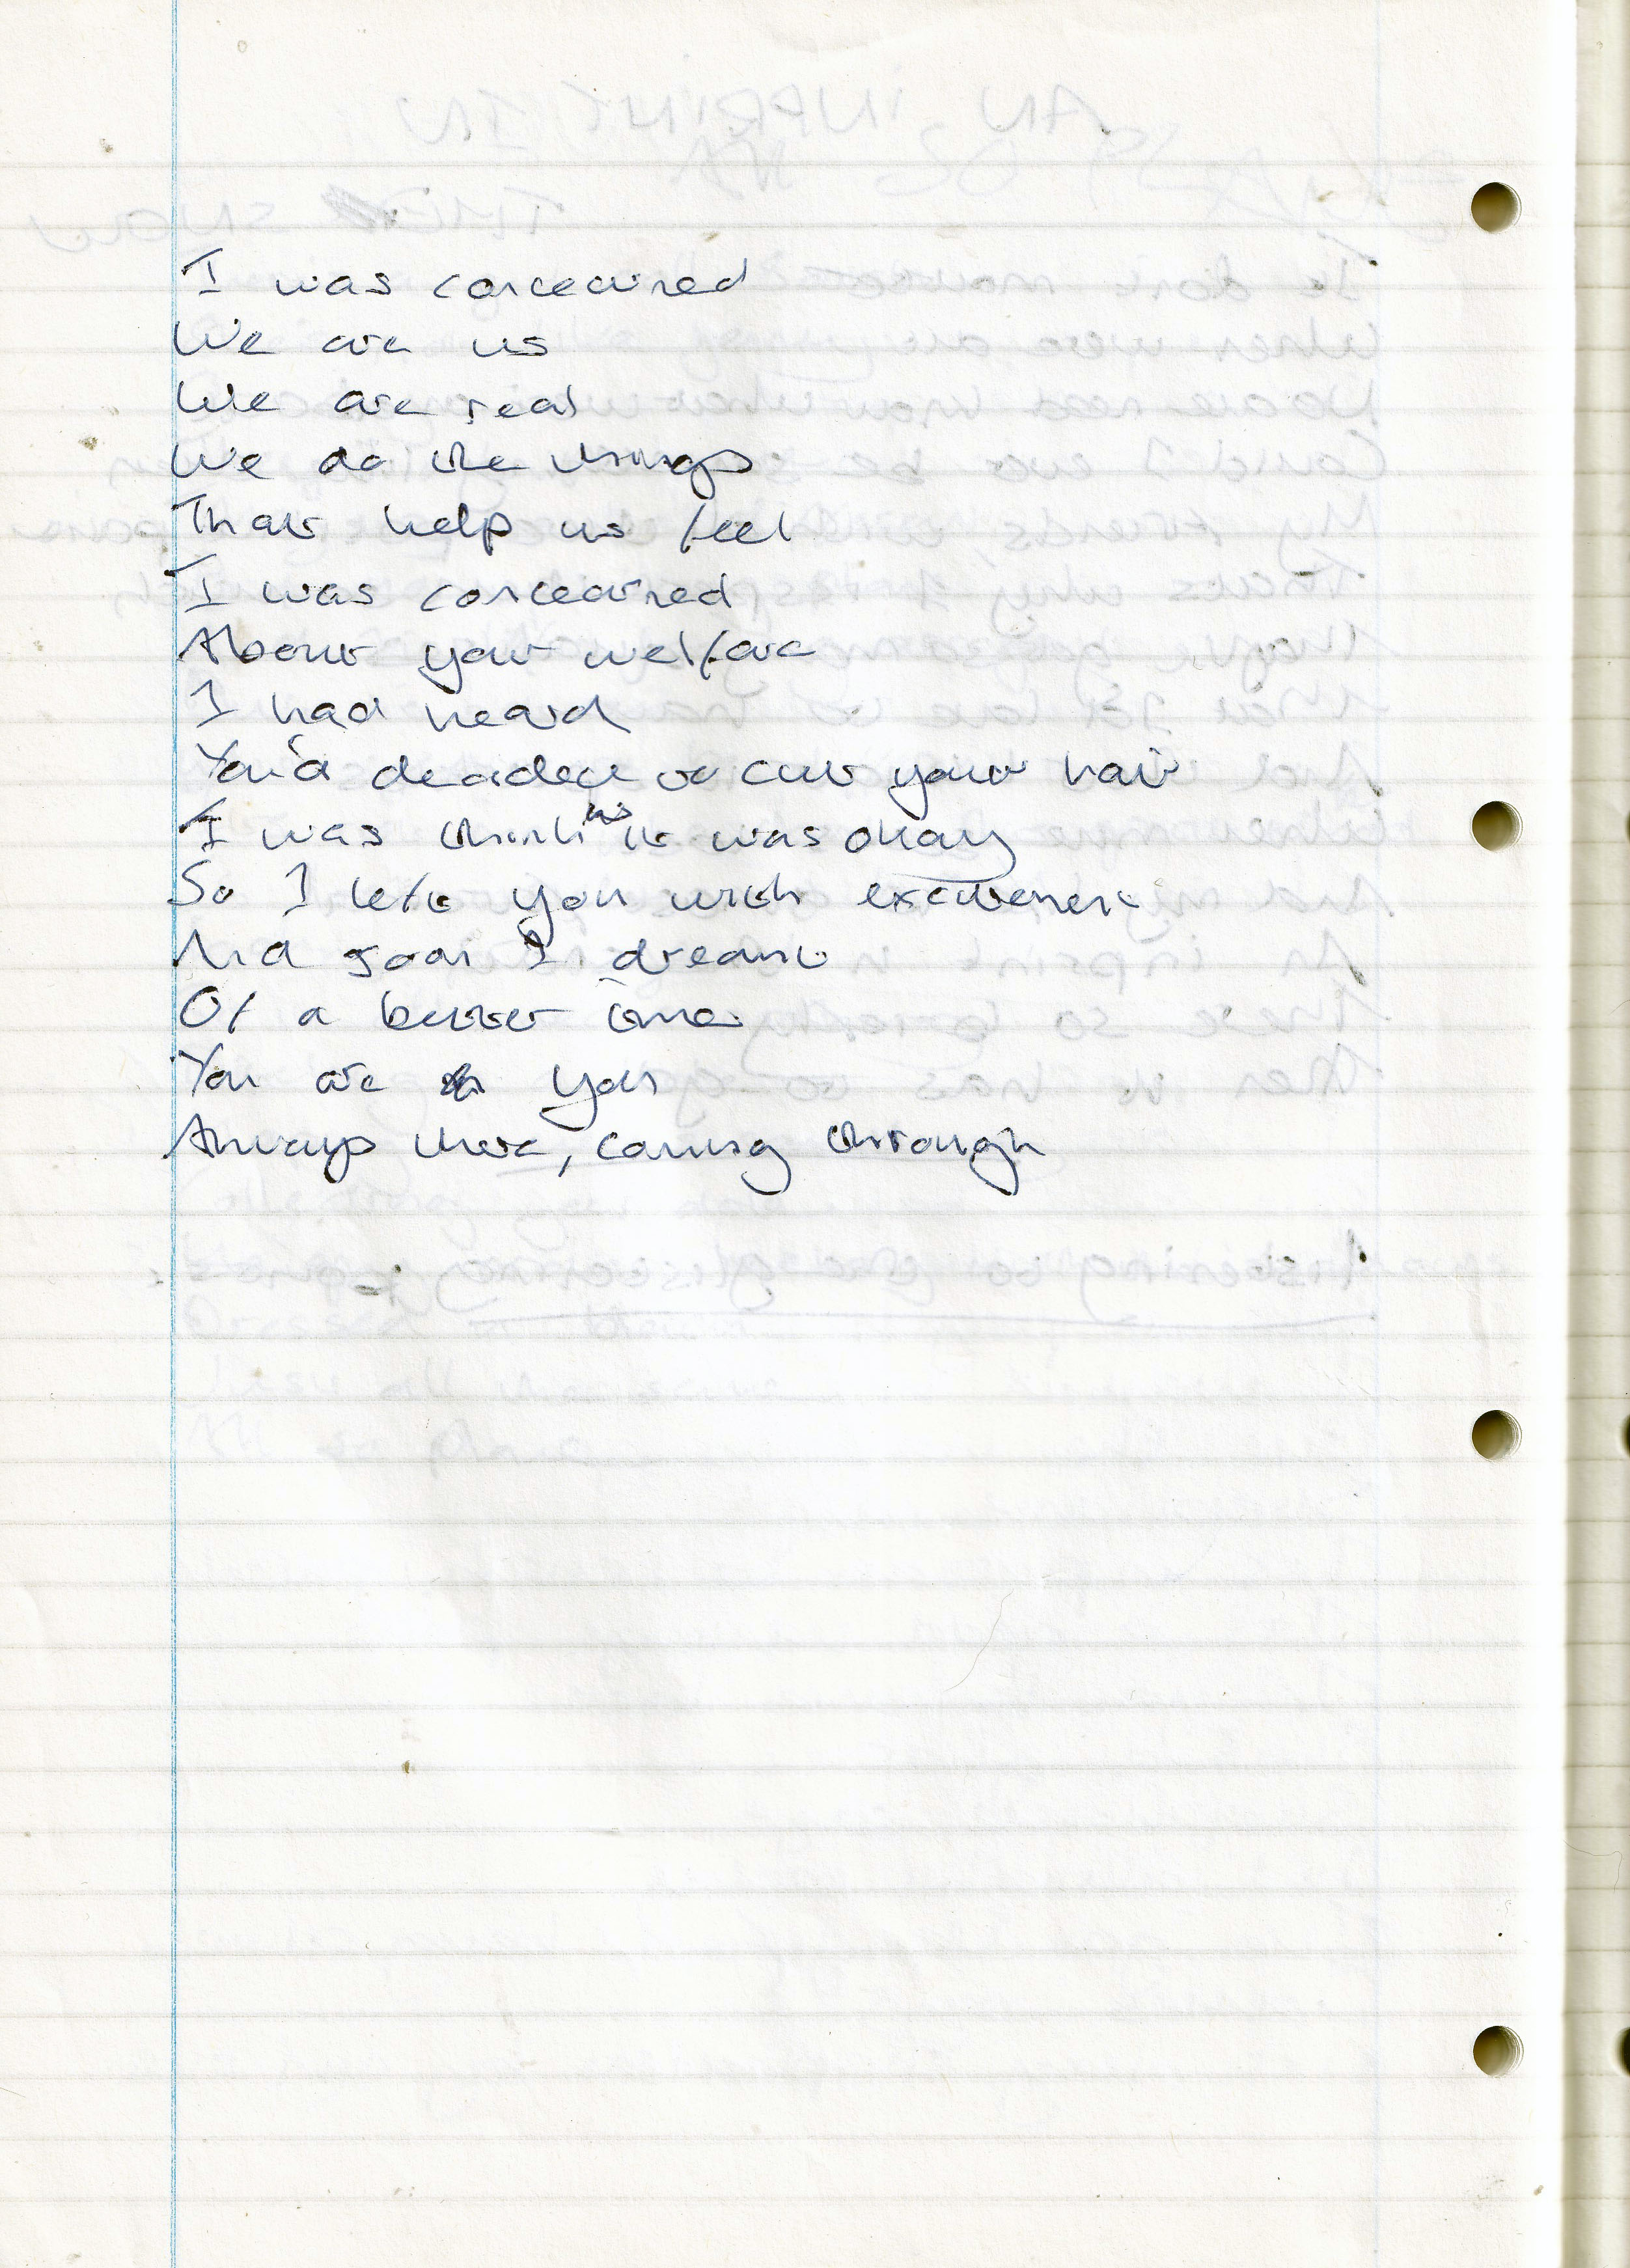 I was concearned
We are us
We are real
We do the things
That help us feel
I was concearned
About your welfare
I had heard
You'd decided to cut your hair
I was thinking it was okay
So I left you with excitement
And soon I dreamt
Of a better time
You are you
Always there, coming through